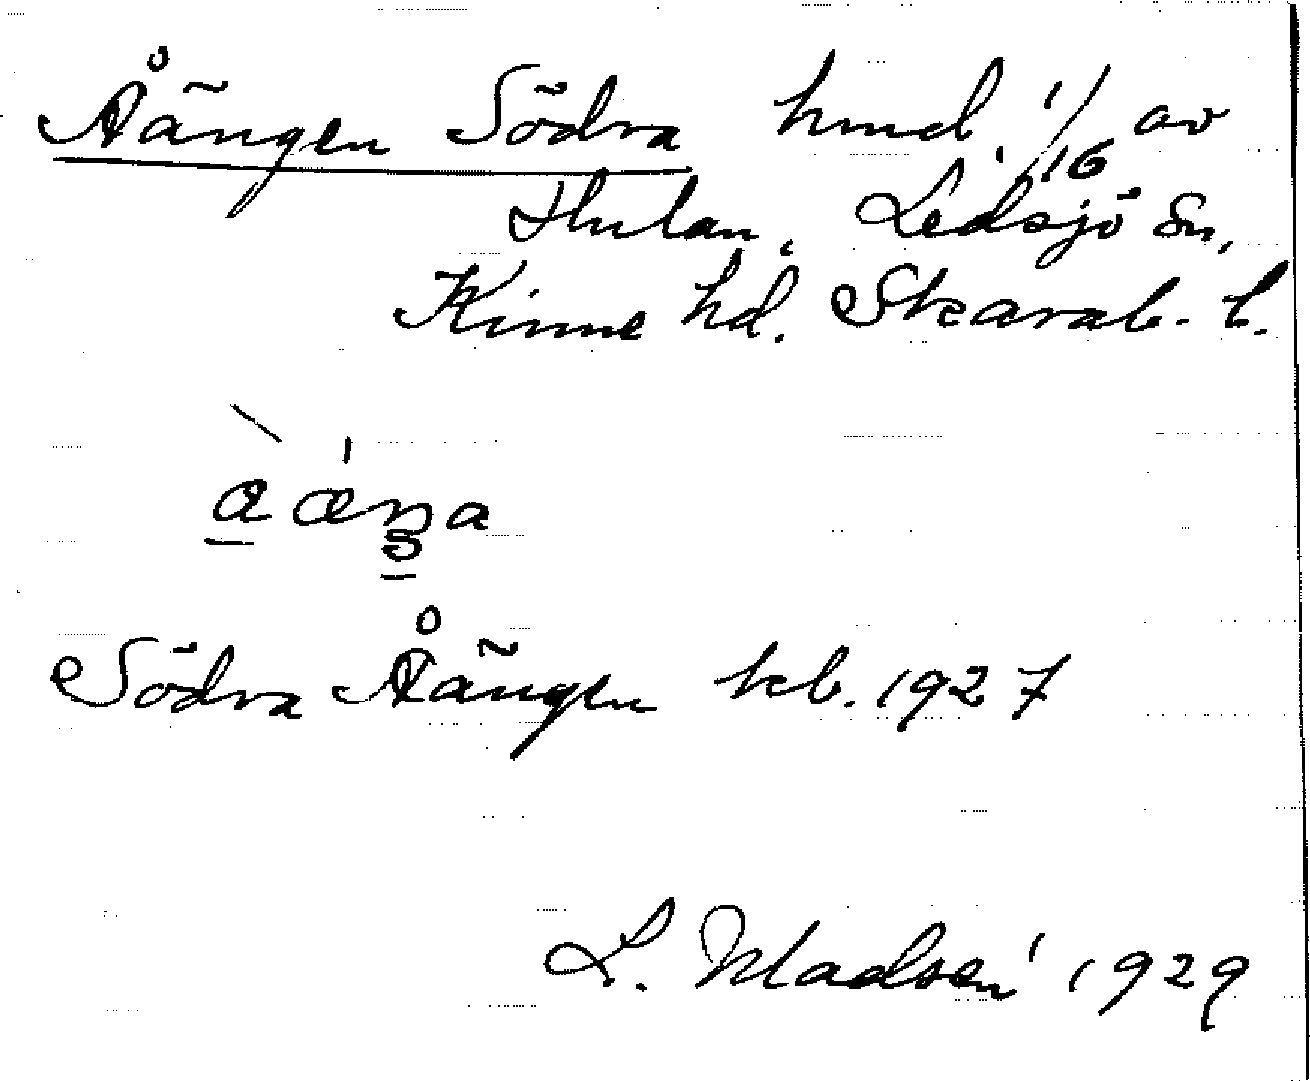 Åängen Södra hmd 1/16 av
Hulan, Ledsjö sn,
Kinne hd. Skarab. l.
Södra Åängen kb. 1927
L. Madsén 1929